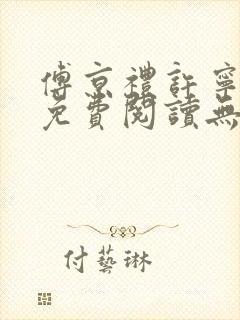 傅京禮許寧
免費閱讀無
付藝琳